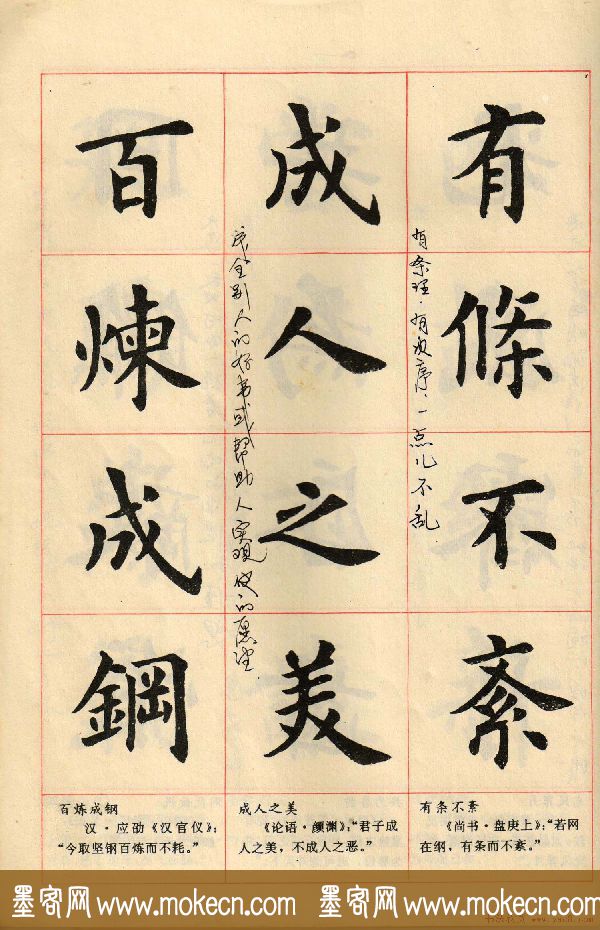 有條不紊
有条理·有次序·一点儿不乱
成人之美
成全别人的好事或帮助人实现他的愿望
百煉成鋼
有条不紊
《尚书·盘庚上》：“若网
在纲，有条而不紊。”
成人之美
《论语·颜渊》：“君子成
人之美，不成人之恶。”
百炼成钢
汉·应劭《汉官仪》：
“今取坚钢百炼而不耗。”
墨客网 www.mokecn.com 墨客网 www.mokecn.com